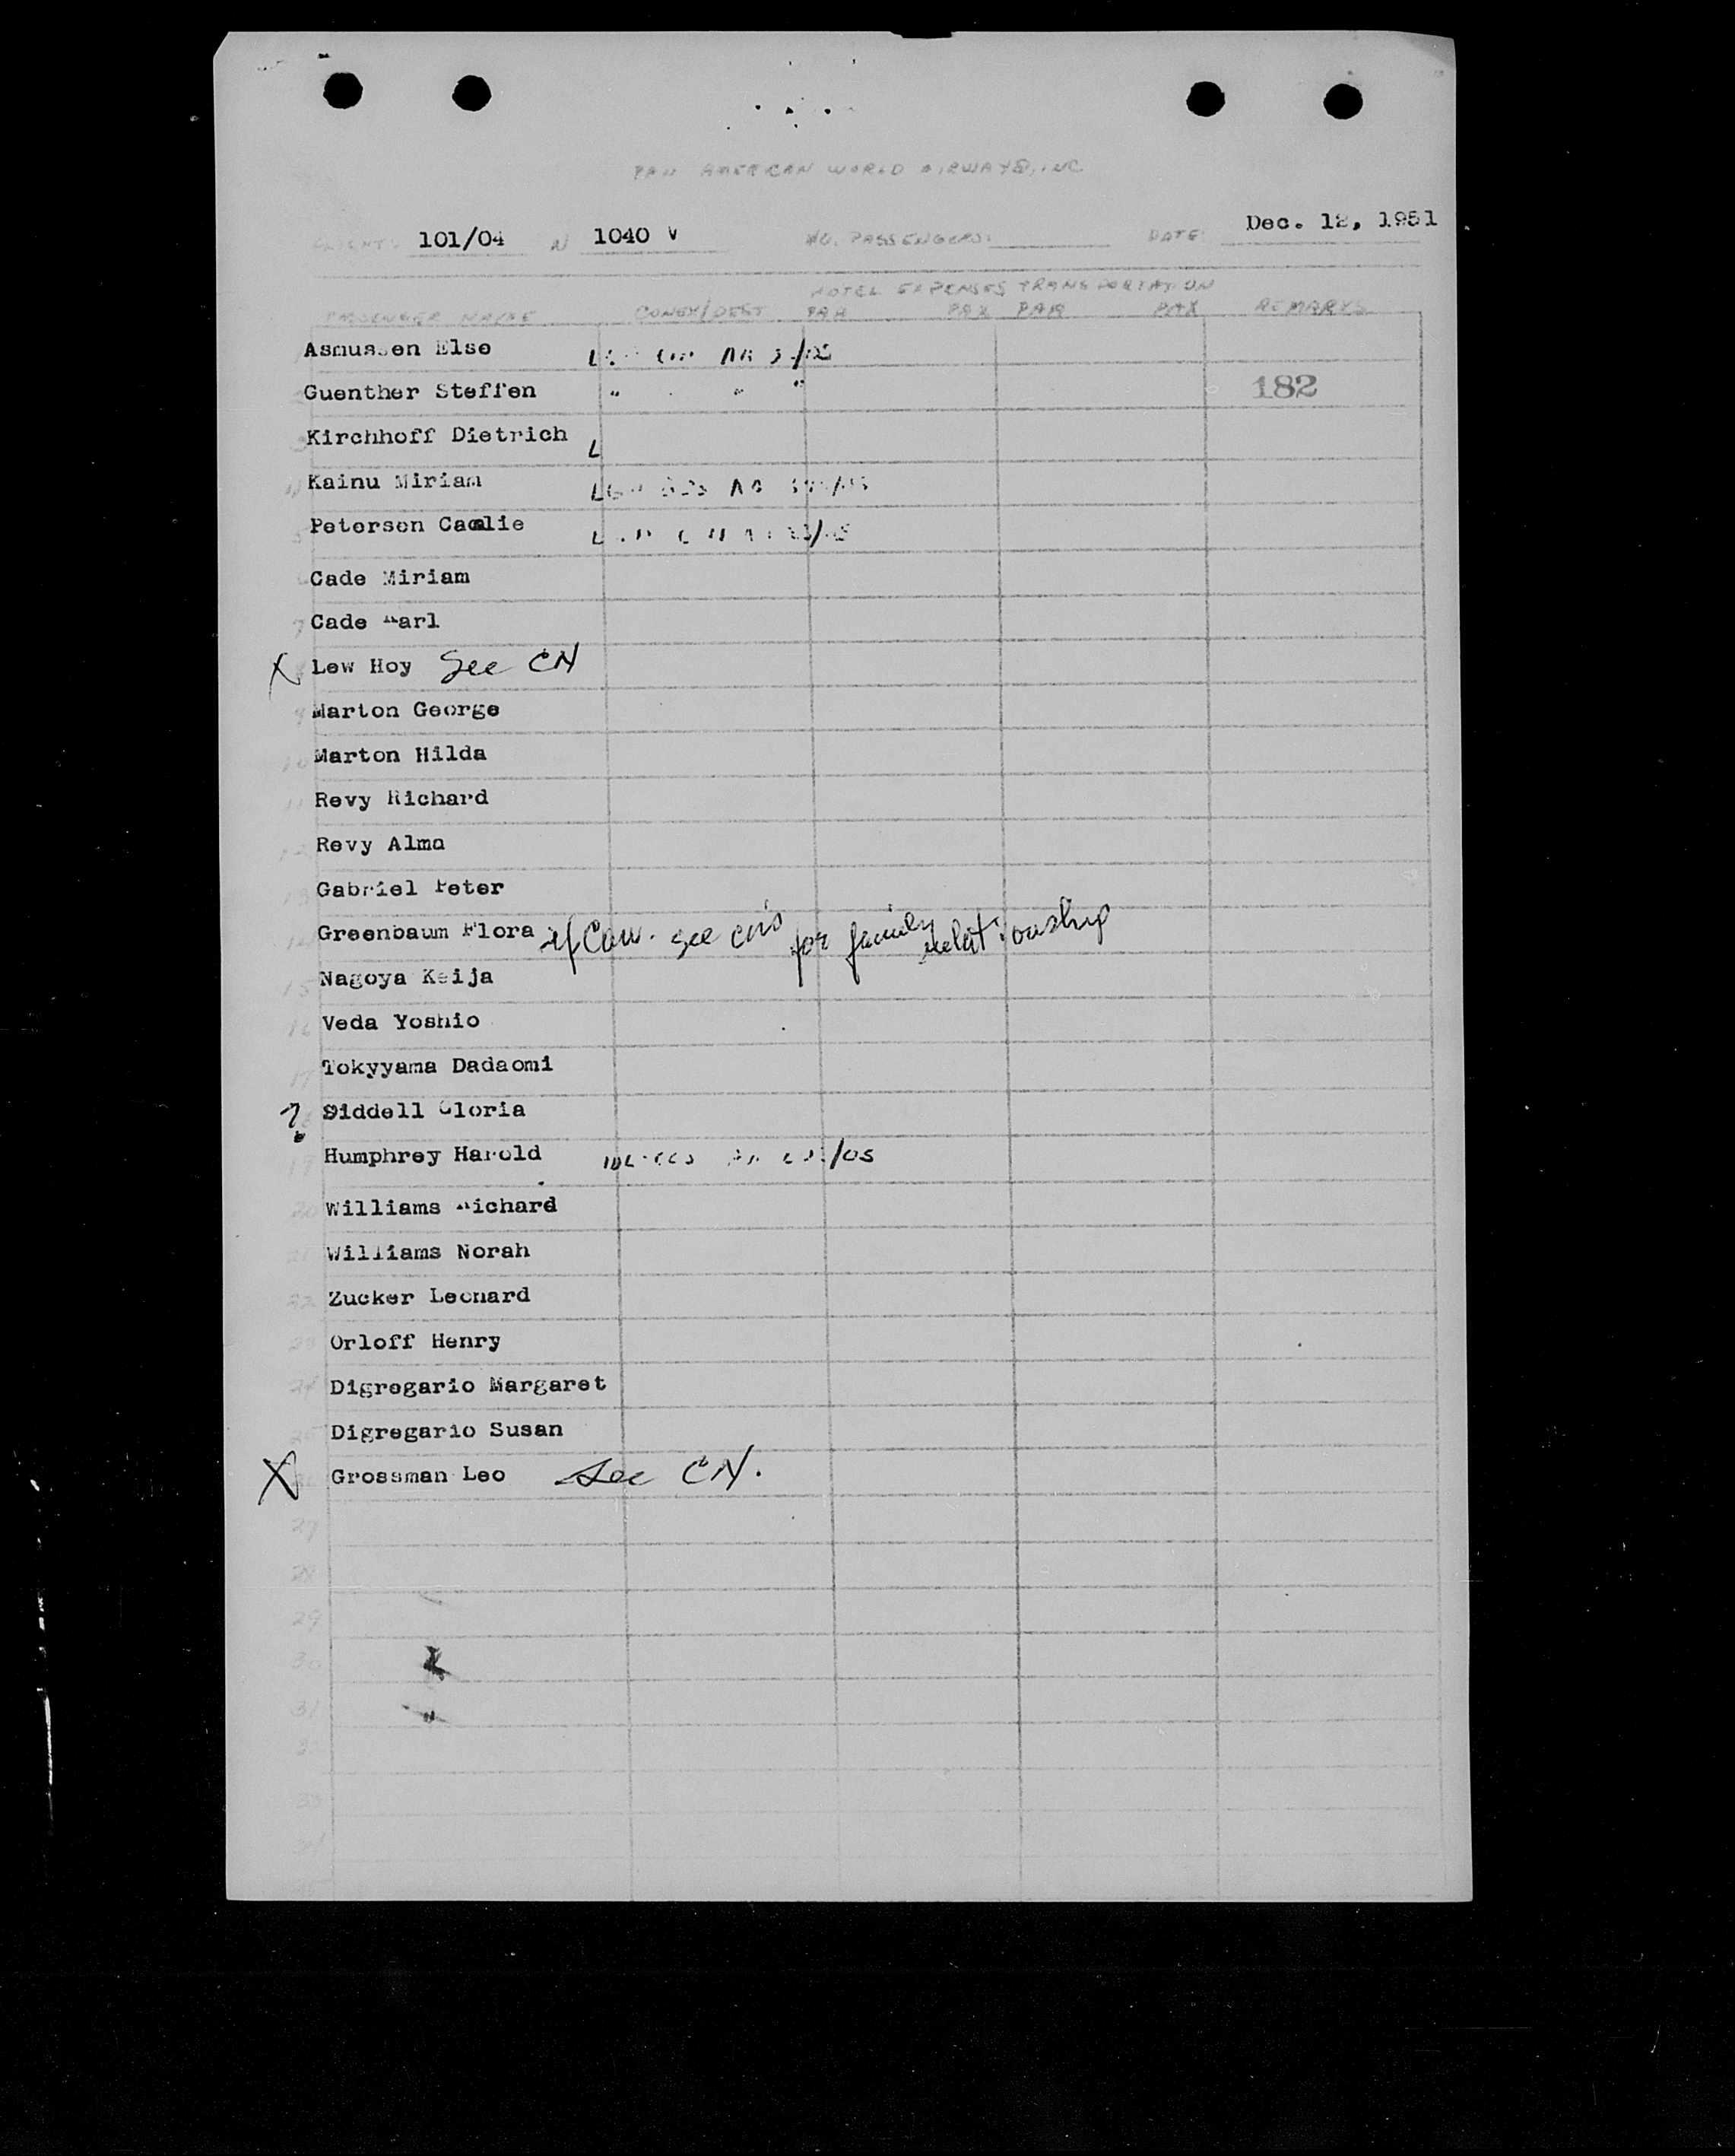 PAN AMERICAN WORLD AIRWAYS, INC
FLIGHT: 101/04 N 1040 V NO. PASSENGERS: DATE: Dec. 12, 1951
HOTEL EXPENSES TRANSPORTATION
PASSENGER NAME CONEX/DEST PAA PAX PAA PAX REMARKS
Asmussen Else
2 Guenther Steffen " " " 182
3 Kirchhoff Dietrich L
4 Kainu Miriam
5 Peterson
6 Cade Miriam
7 Cade Karl
X 8 Lew Hoy See CN
9 Marton George
10 Marton Hilda
11 Revy Richard
12 Revy Alma
13 Gabriel Peter
14 Greenbaum Flora see for family relationship
15 Nagoya Keija
16 Veda Yoshio
17 Tokyyama Dadaomi
? Siddell Gloria
19 Humphrey Harold /05
20 Williams Richard
21 Williams Norah
22 Zucker Leonard
23 Orloff Henry
24 Digregario Margaret
25 Digregario Susan
X 26 Grossman Leo See CN.
27
28
29
30
31
32
33
34